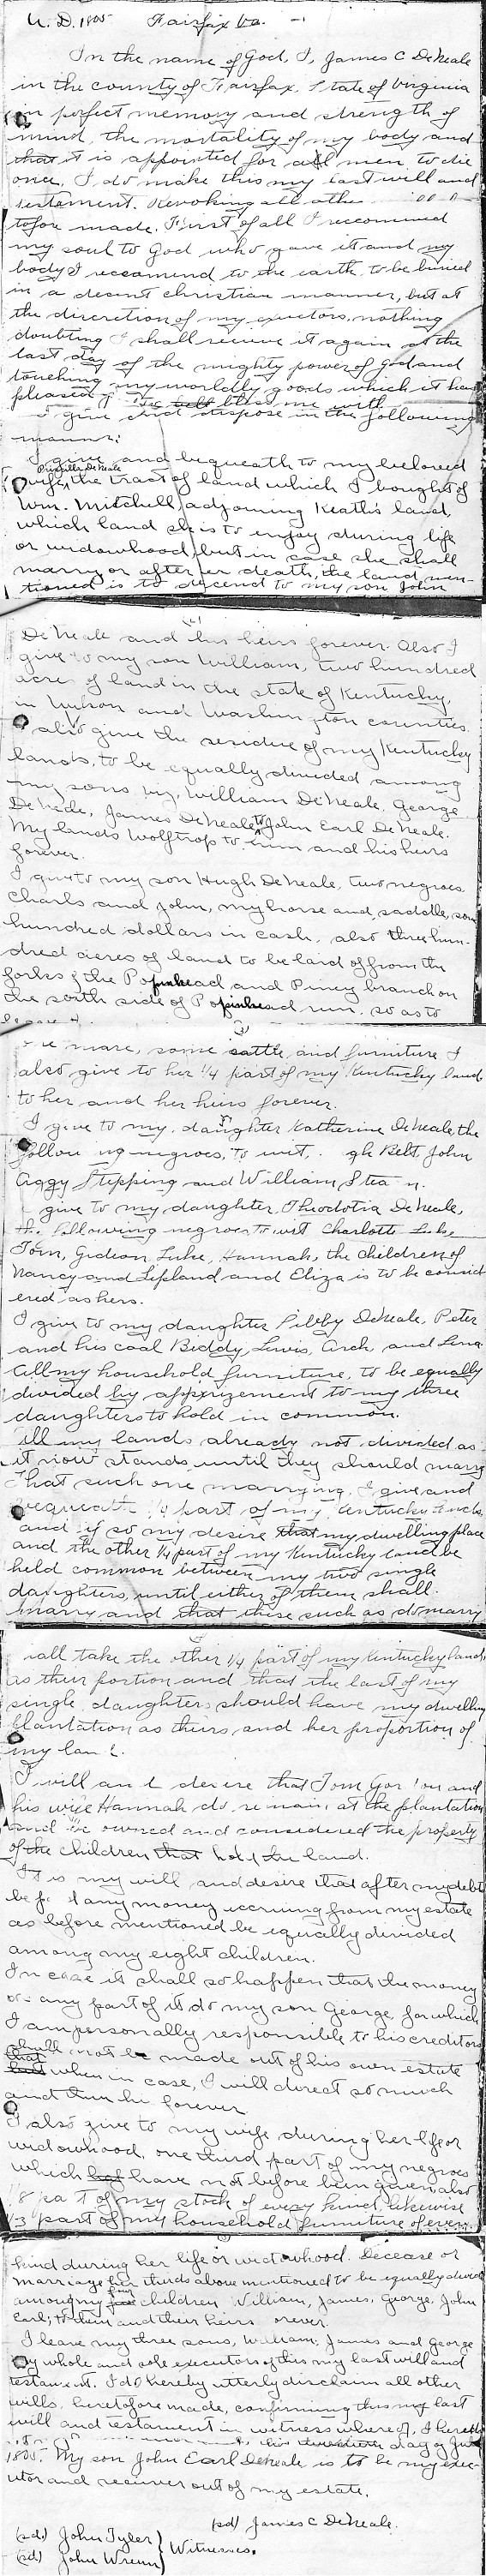 A. D. 1805 Fairfax Co.
In the name of God, I, James C DeNeale
in the county of Fairfax, State of Virginia
in perfect memory and strength of
mind, the mortality of my body and
that it is appointed for all men to die
once. I do make this my last will and
testament. Revoking all othe
tofore made. First of all I reccomend
my soul to God who gave it and my
body I reccomend to the earth, to be buried
in a decent christian manner, but at
the discretion of my exectors, nothing
doubting I shall receive it again at the
last day of the mighty power of God and
touching my worldly goods which it has
pleased bless me with
I give and dispose in the following
manner:
I give and bequeath to my beloved
wife, Priscilla DeNeale the tract of land which I bought of
Wm. Mitchell, adjoining Keath's land,
which land she is to enjoy during life
or widowhood, but in case she shall
marry or after her death, the land men-
tioned is to descend to my son John
DeNeale and his heirs forever. Also I
give to my son William, two hundred
acres of land in the state of Kentucky,
in and Washin gton counties.
I also give the residue of my Kentucky
lands, to be equally divided among
my sons, William DeNeale, George
DeNeale, James DeNeale & John Earl DeNeale.
My lands Wolftrap to him and his heirs
forever.
I give to my son Hugh DeNeale, two negroes
Charls and John, my horse and saddle, some
hundred dollars in cash, also three hun-
dred acres of land to be laid off from the
forks of the Popinhead and Piney branch on
the south side of Popinhead run, so as to
3)
mare, some cattle and furniture I
also give to her 1/4 part of my Kentucky land
to her and her heirs forever.
I give to my daughter Katherine DeNeale, the
follow ing negroes, to wit, Belt, John
Aggy Stepping and William
give to my daughter, Theodotia DeNeale,
the following negroes to wit Charlotte
Tom, Gideon, Luke, Hannah, the children of
Nancy and and Eliza is to be consid
ered as hers.
I give to my daughter DeNeale, Peter
and his coal Biddy, Lewis, Arch, and Lena
All my household furniture, to be equally
divided by apprizement to my three
daughters to hold in common.
All my lands already not divided as
it now stands until they should marry
That such one marrying, I give and
bequeath 1/4 part of my Kentucky lands,
and if so my desire that my dwelling place
and the other 1/4 part of my Kentucky land be
held common between my two single
daughters, until either of them shall
marry and that these such as do marry
shall take the other 1/4 part of my Kentucky lands
as their portion and that the last of my
single daughters should have my dwelling
plantation as theirs, and her proportion of
my lan d.
I will an d desire that Tom and
his wife Hannah do remain, at the plantation
and be owned and considered the property
of the children that hold the land.
It is my will and desire that after my debts
be any money accruing from my estate
as before mentioned be equally divided
among my eight children.
In case it shall so happen that the money
or any part of it do my son George, for which
I am personally responsible to his creditors
shall not be made out of his own estate
that when in case, I will direct so much
forever
I also give to my wife during her life or
widowhood, one third part of my negroes
which have not before been given, also
1/8 pa rt of my stock of every kind, likewise
1/3 part of my household furniture of every
kind during her life or widowhood. Decease or
marriage her thirds above mentioned to be equally divided
among my four children William, James, George, John
Earl; to them and their heirs orever.
I leave my three sons, William, James and George
my whole and sole executors of this my last will and
testament. I do hereby utterly disclaim all other
wills, heretofore made, confirming this my last
will and testament in witness whereof, I hereto
day of
1805. My son John Earl DeNeale is to be my exec-
utor and receiver out of my estate.
(sd) James C DeNeale.
(sd.) John Tyler
(sd) John Wrenn
Witnesses.